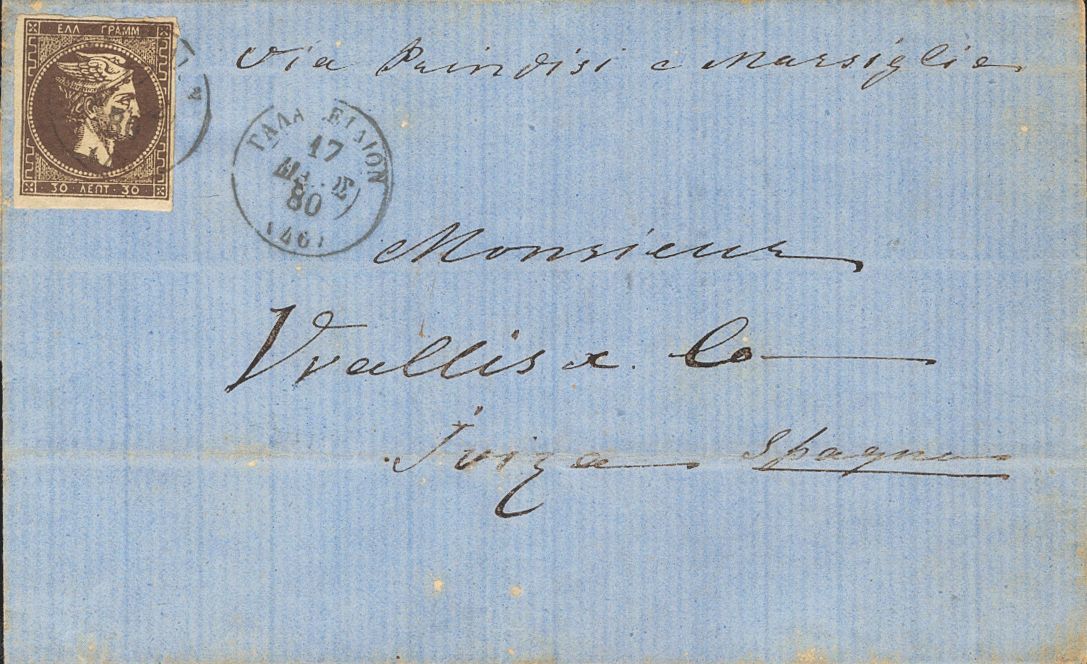 ΕΛΛ ΓΡΑΜΜ
30 · ΛΕΠΤ · 30
Via Brindisi e Marsiglia
ΓΑΛΑ ΕΙΔΙΟΝ
17
80
(46)
Monsieur
Wallis & Co
Iviza Spagna